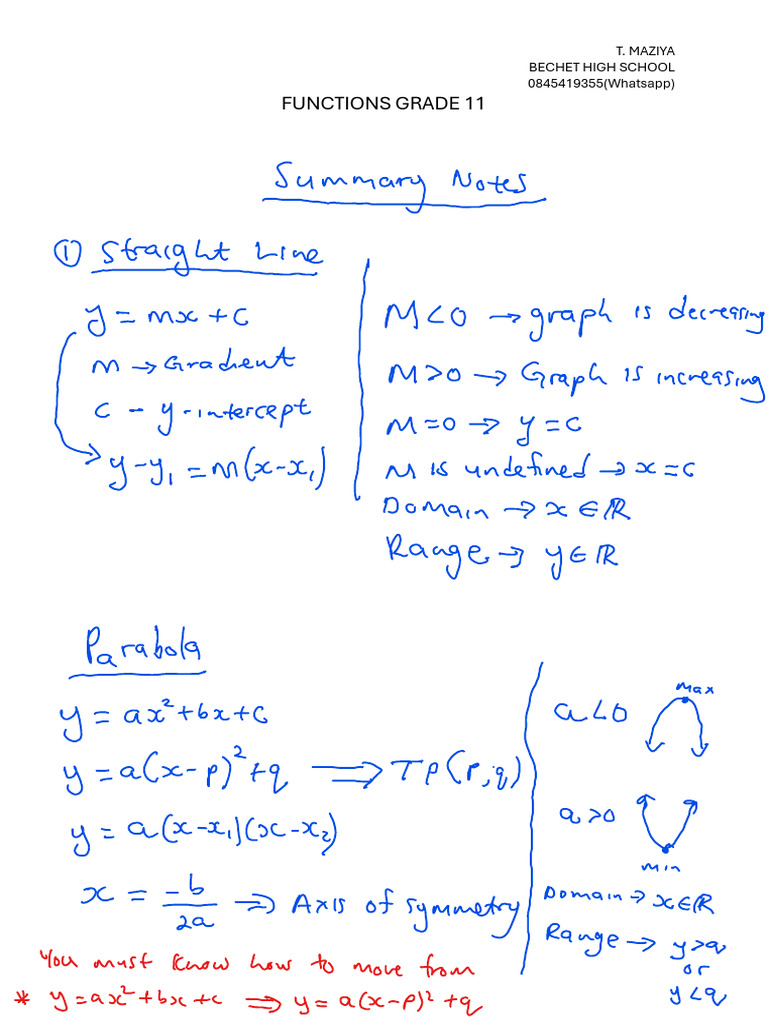 T. MAZIYA
BECHET HIGH SCHOOL
0845419355(Whatsapp)
FUNCTIONS GRADE 11
Summary Notes
① Straight Line
y = mx + c
m → Gradient
c - y-intercept
y-y₁ = m(x-x₁)
M<0 → graph is decreasing
M>0 → Graph is increasing
M=0 → y=c
M is undefined → x=c
Domain → x∈ℝ
Range → y∈ℝ
Parabola
y = ax²+bx+c
y = a(x-p)²+q ⟹ TP(p;q)
y = a(x-x₁)(x-x₂)
x = -b/2a ⇒ Axis of symmetry
a<0
Max
a>0
min
Domain → x∈ℝ
Range → y>q
or
y<q
You must know how to move from
* y=ax²+bx+c ⟹ y=a(x-p)²+q